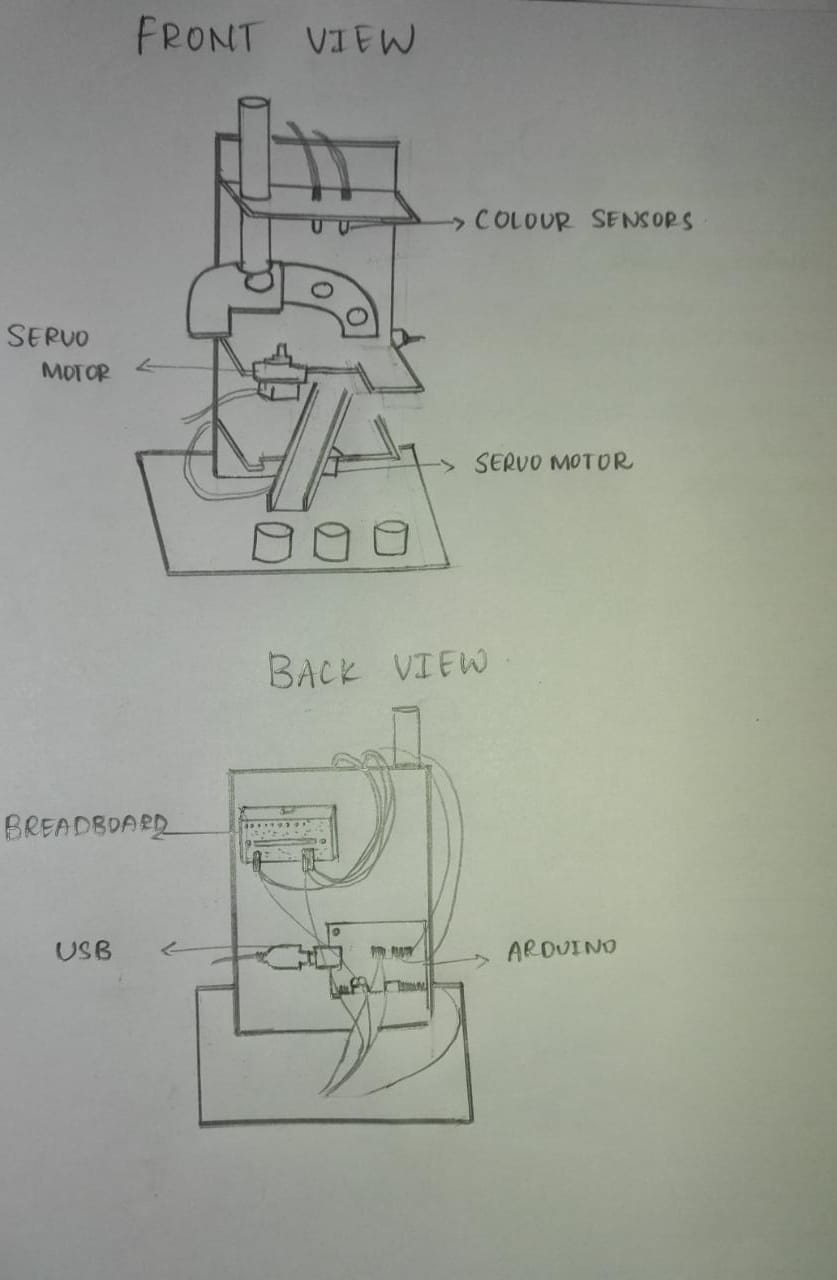 FRONT VIEW
COLOUR SENSORS
SERVO
MOTOR
SERVO MOTOR
BACK VIEW
BREADBOARD
USB
ARDUINO